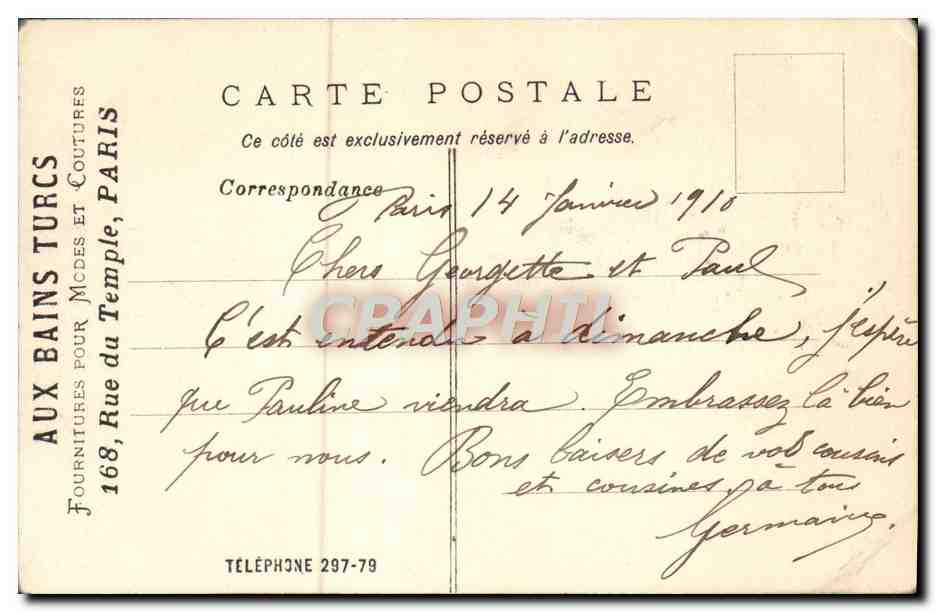 AUX BAINS TURCS
FOURNITURES POUR MODES ET COUTURES
168, Rue du Temple, PARIS
CARTE POSTALE
Ce côté est exclusivement réservé à l'adresse.
Correspondance
Paris 14 Janvier 1910
Chers Georgette et Paul
C'est entendu à dimanche, j'espère
que Pauline viendra. Embrassez la bien
pour nous. Bons baisers de vos cousins
et cousines à tous
Germaine.
TÉLÉPHONE 297-79
CPAPHIL